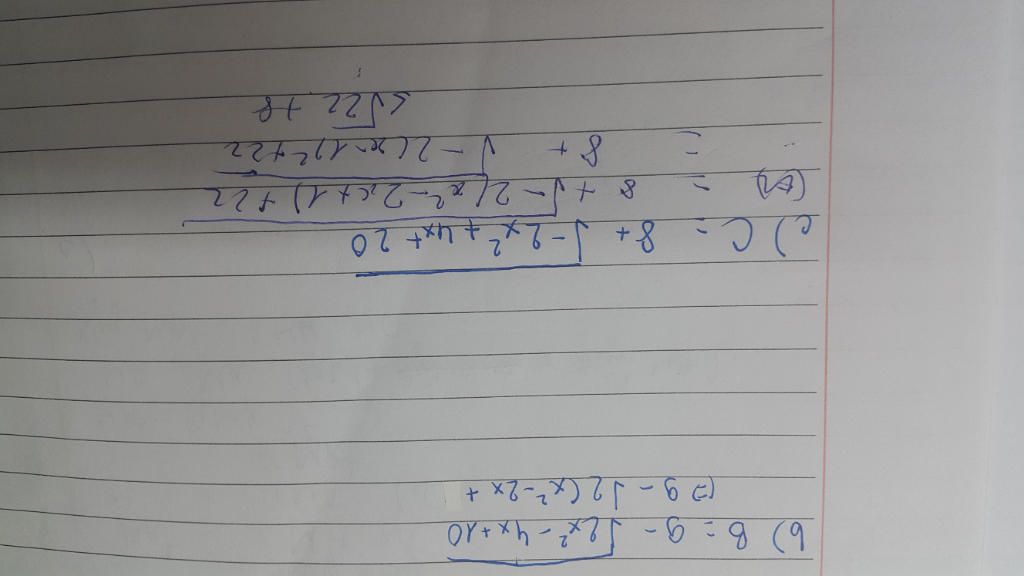 b) B = 9 - √2x² - 4x + 10
(=) 9 - √2(x² - 2x +
c) C = 8 + √-2x² + 4x + 20
= 8 + √-2(x² - 2x + 1) + 22
= 8 + √-2(x - 1)² + 22
≤ √22 + 8